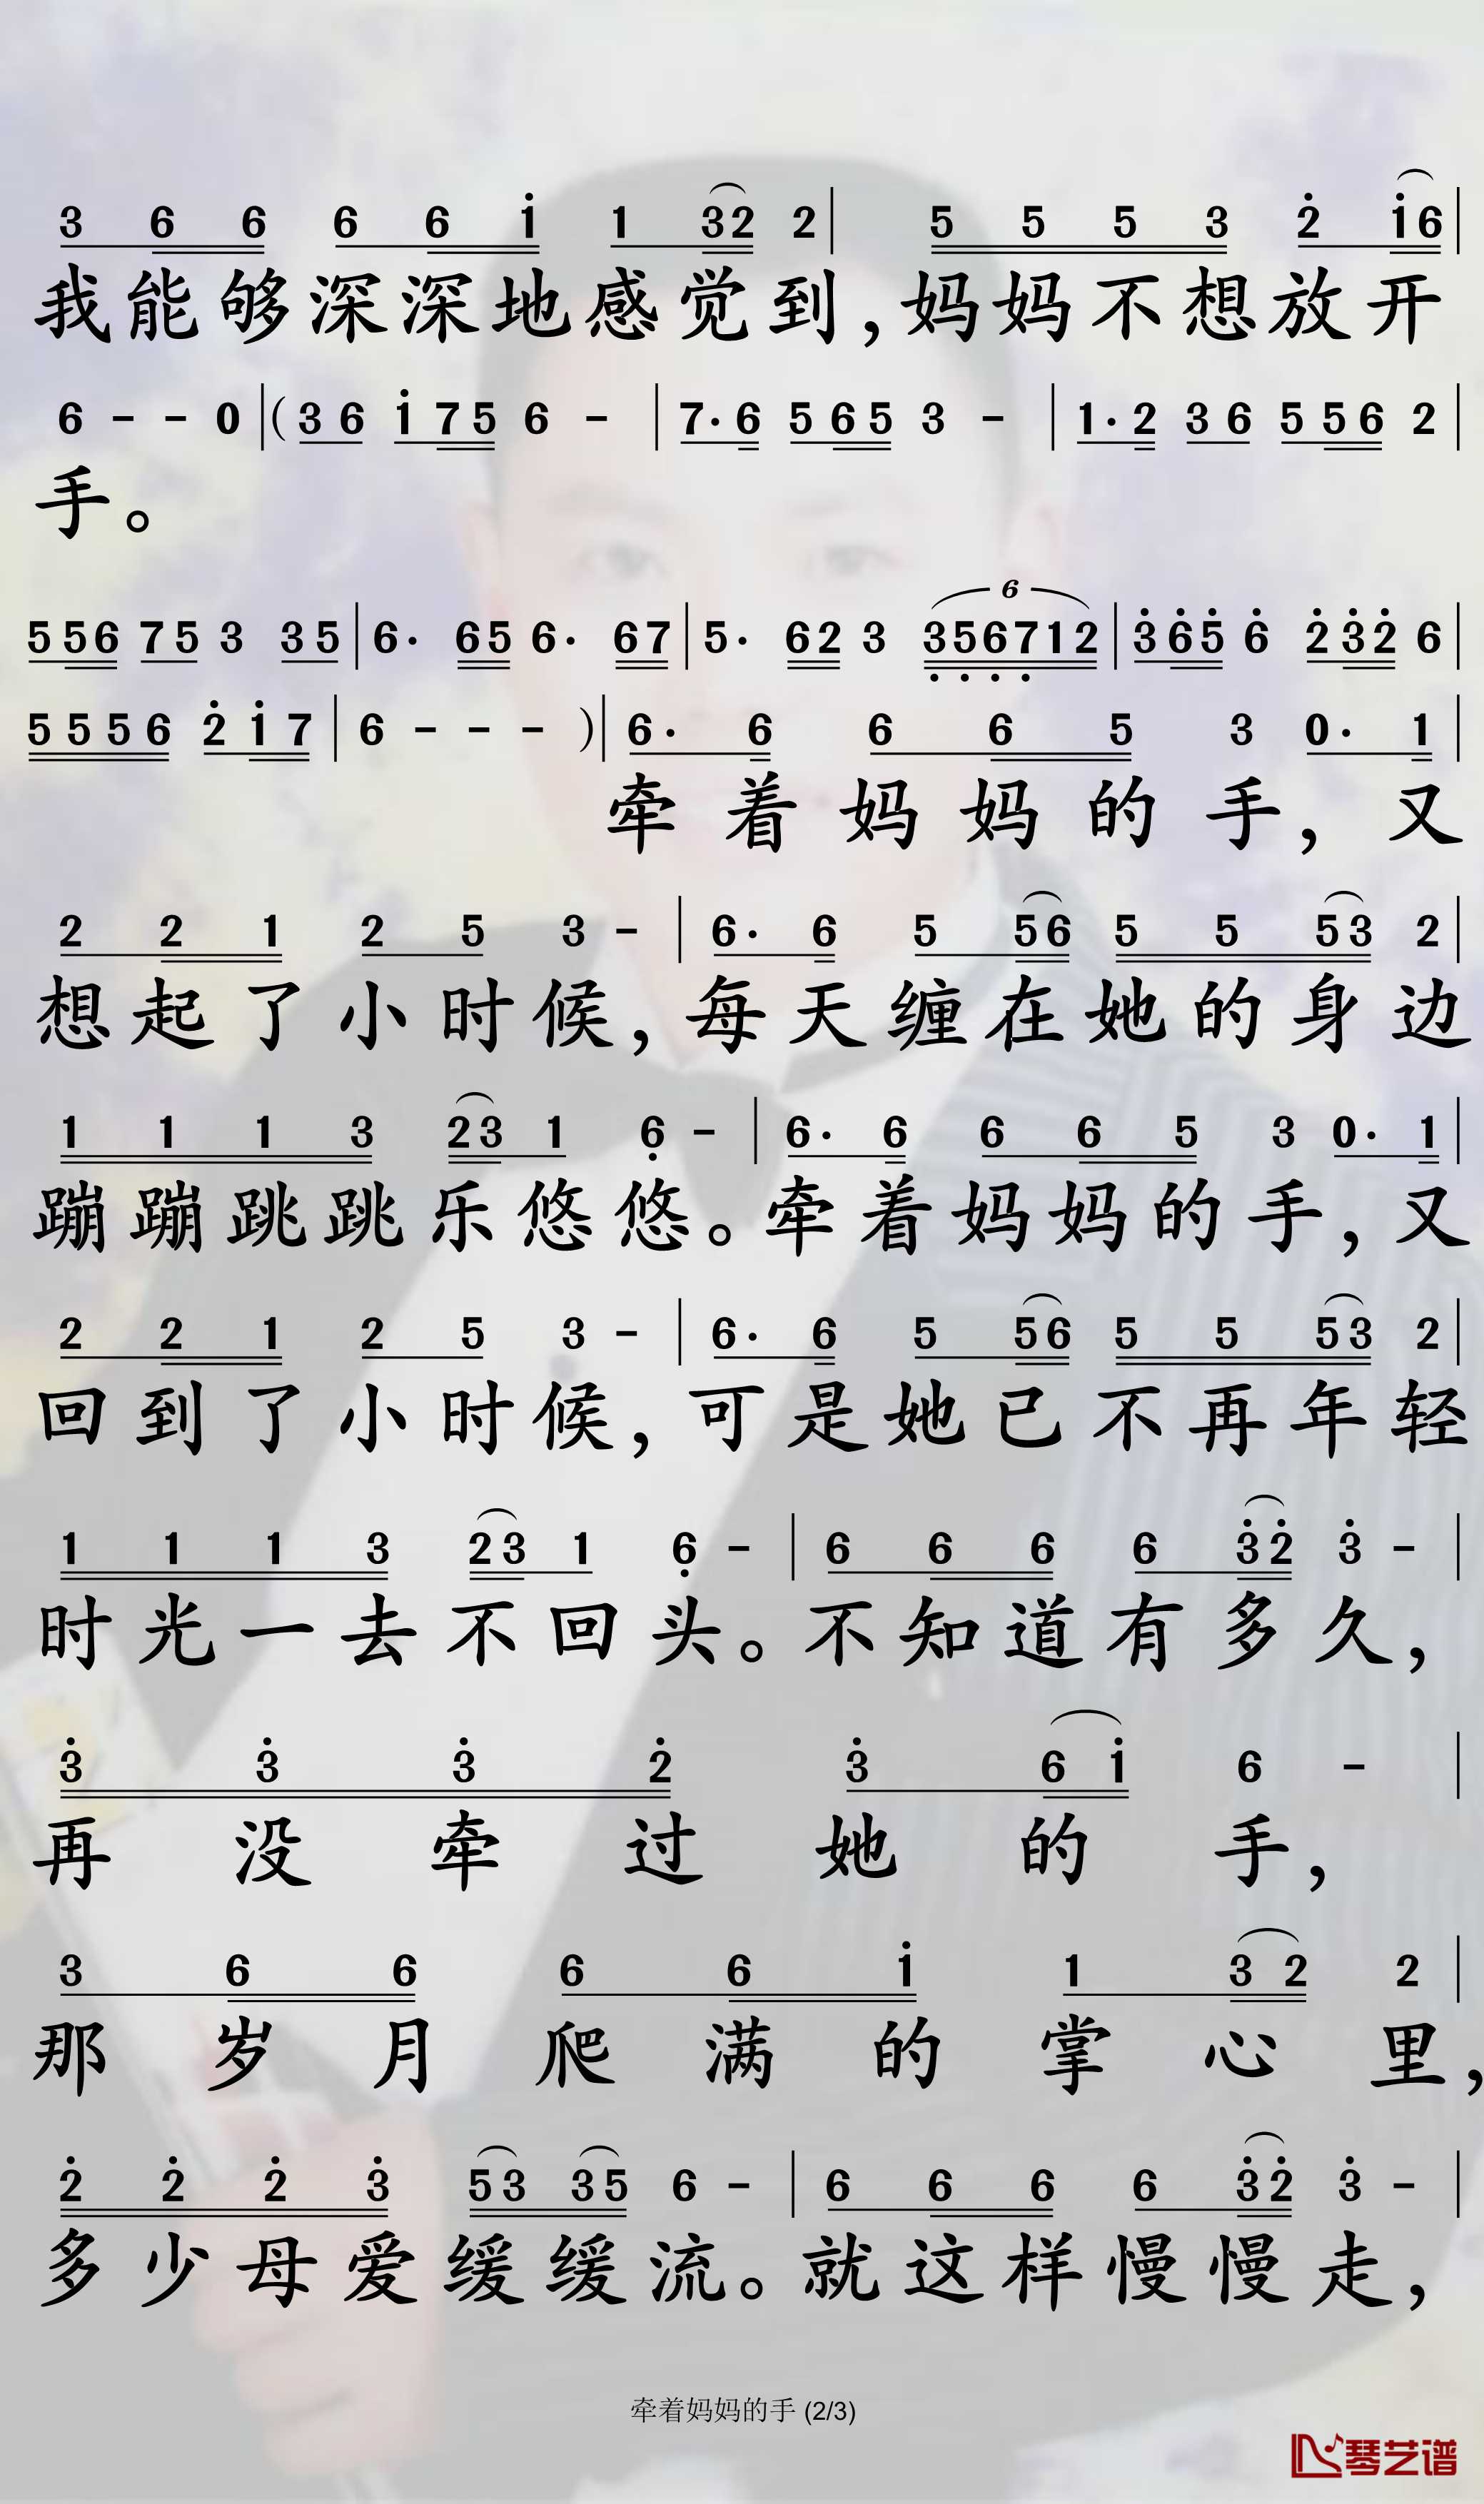 3 6 6 6 6 i 1 32 2 | 5 5 5 3 2̇ i6 |
我能够深深地感觉到，妈妈不想放开
6 - - 0 |( 3 6 i 7 5 6 - | 7· 6 5 6 5 3 - | 1· 2 3 6 5 5 6 2 |
手。
6
5 5 6 7 5 3 3 5 | 6· 6 5 6· 6 7 | 5· 6 2 3 3̣ 5̣ 6̣ 7̣ 1 2 | 3̇ 6̇ 5̇ 6̇ 2̇ 3̇ 2̇ 6 |
5 5 5 6 2̇ i 7 | 6 - - - )| 6· 6 6 6 5 3 0· 1 |
牵着妈妈的手，又
2 2 1 2 5 3 - | 6· 6 5 5 6 5 5 5 3 2 |
想起了小时候，每天缠在她的身边
1 1 1 3 2 3 1 6̣ - | 6· 6 6 6 5 3 0· 1 |
蹦蹦跳跳乐悠悠。牵着妈妈的手，又
2 2 1 2 5 3 - | 6· 6 5 5 6 5 5 5 3 2 |
回到了小时候，可是她已不再年轻
1 1 1 3 2 3 1 6̣ - | 6 6 6 6 3̇ 2̇ 3̇ - |
时光一去不回头。不知道有多久，
3̇ 3̇ 3̇ 2̇ 3̇ 6 i 6 - |
再没牵过她的手，
3 6 6 6 6 i 1 3 2 2 |
那岁月爬满的掌心里，
2̇ 2̇ 2̇ 3̇ 5 3 3 5 6 - | 6 6 6 6 3̇ 2̇ 3̇ - |
多少母爱缓缓流。就这样慢慢走，
牵着妈妈的手 (2/3)
琴艺谱